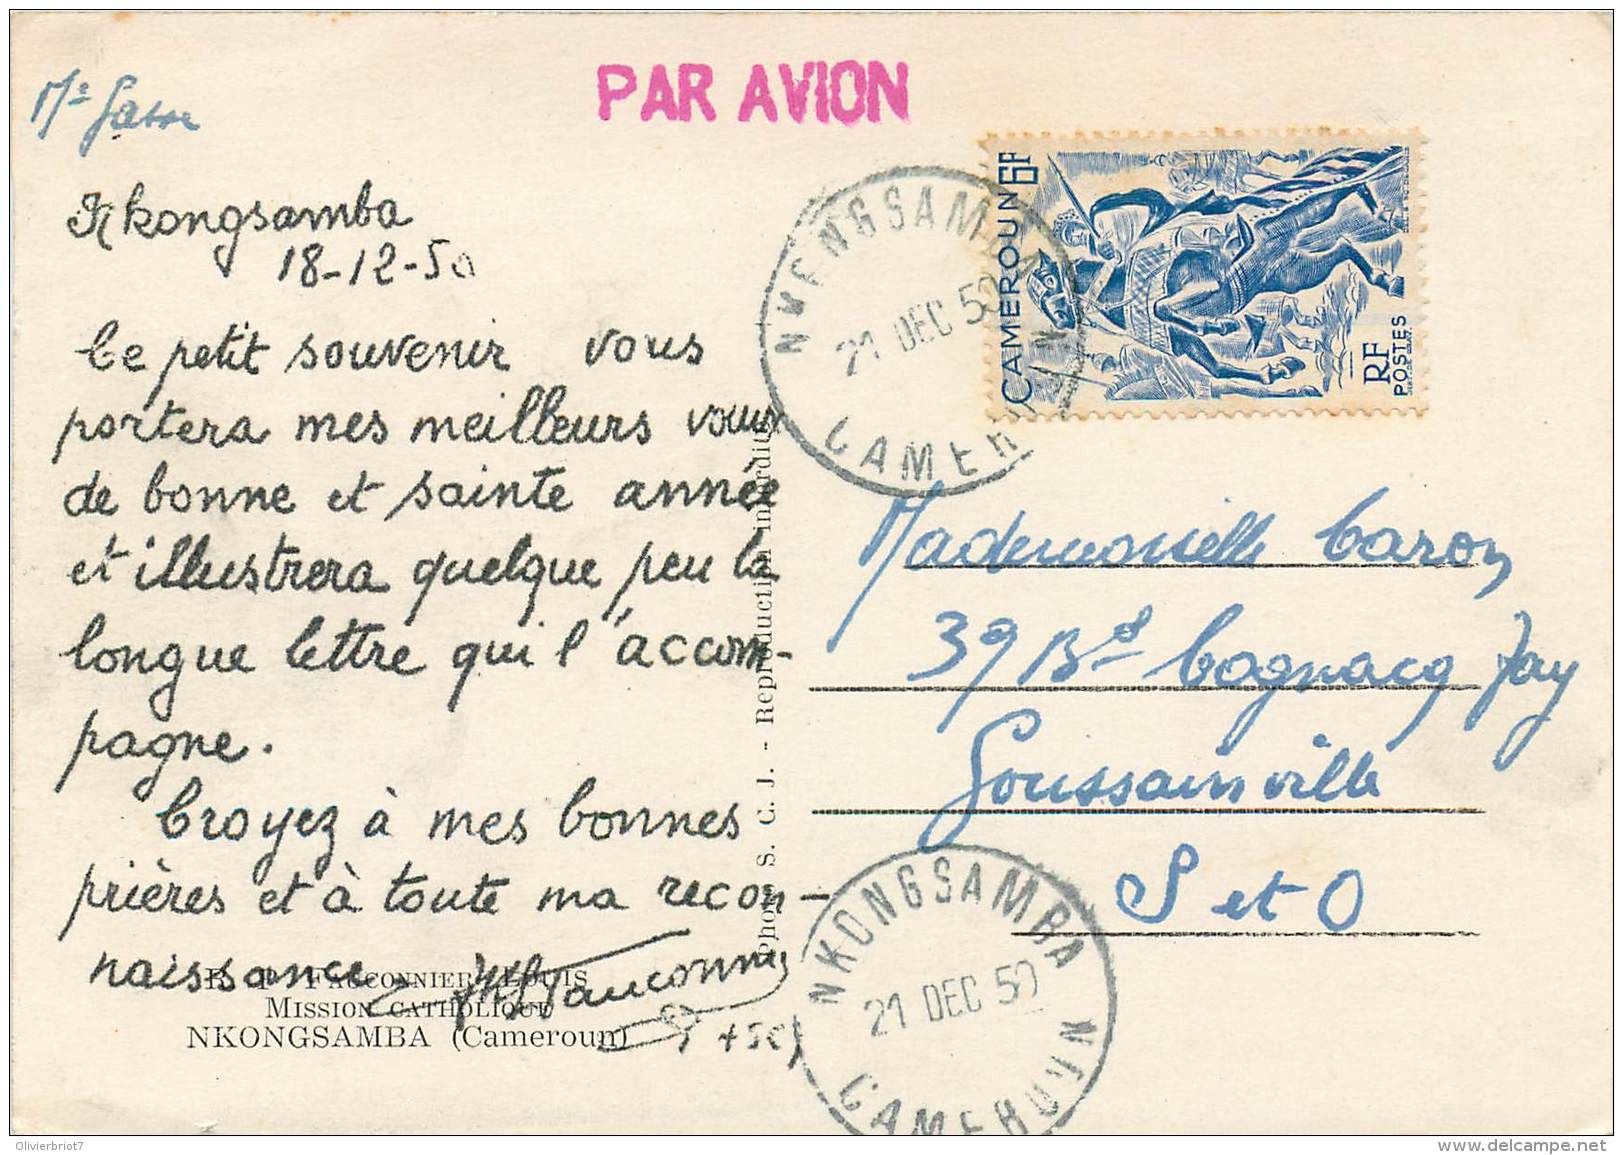 PAR AVION
Nkongsamba
18-12-50
Ce petit souvenir vous
portera mes meilleurs vœux
de bonne et sainte année
et illustrera quelque peu la
longue lettre qui l'accom-
pagne.
Croyez à mes bonnes
prières et à toute ma recon-
naissance
Fauconnier
R. P. FAUCONNIER LOUIS
MISSION CATHOLIQUE
NKONGSAMBA (Cameroun)
Photo S. C. J. - Reproduction interdite
NKONGSAMBA
21 DEC 50
CAMEROUN
CAMEROUN 6F
RF
POSTES
Mademoiselle Caron
39 Bd Cognacq Jay
Goussainville
S et O
NKONGSAMBA
21 DEC 50
CAMEROUN
Olivierbriot7
www.delcampe.net